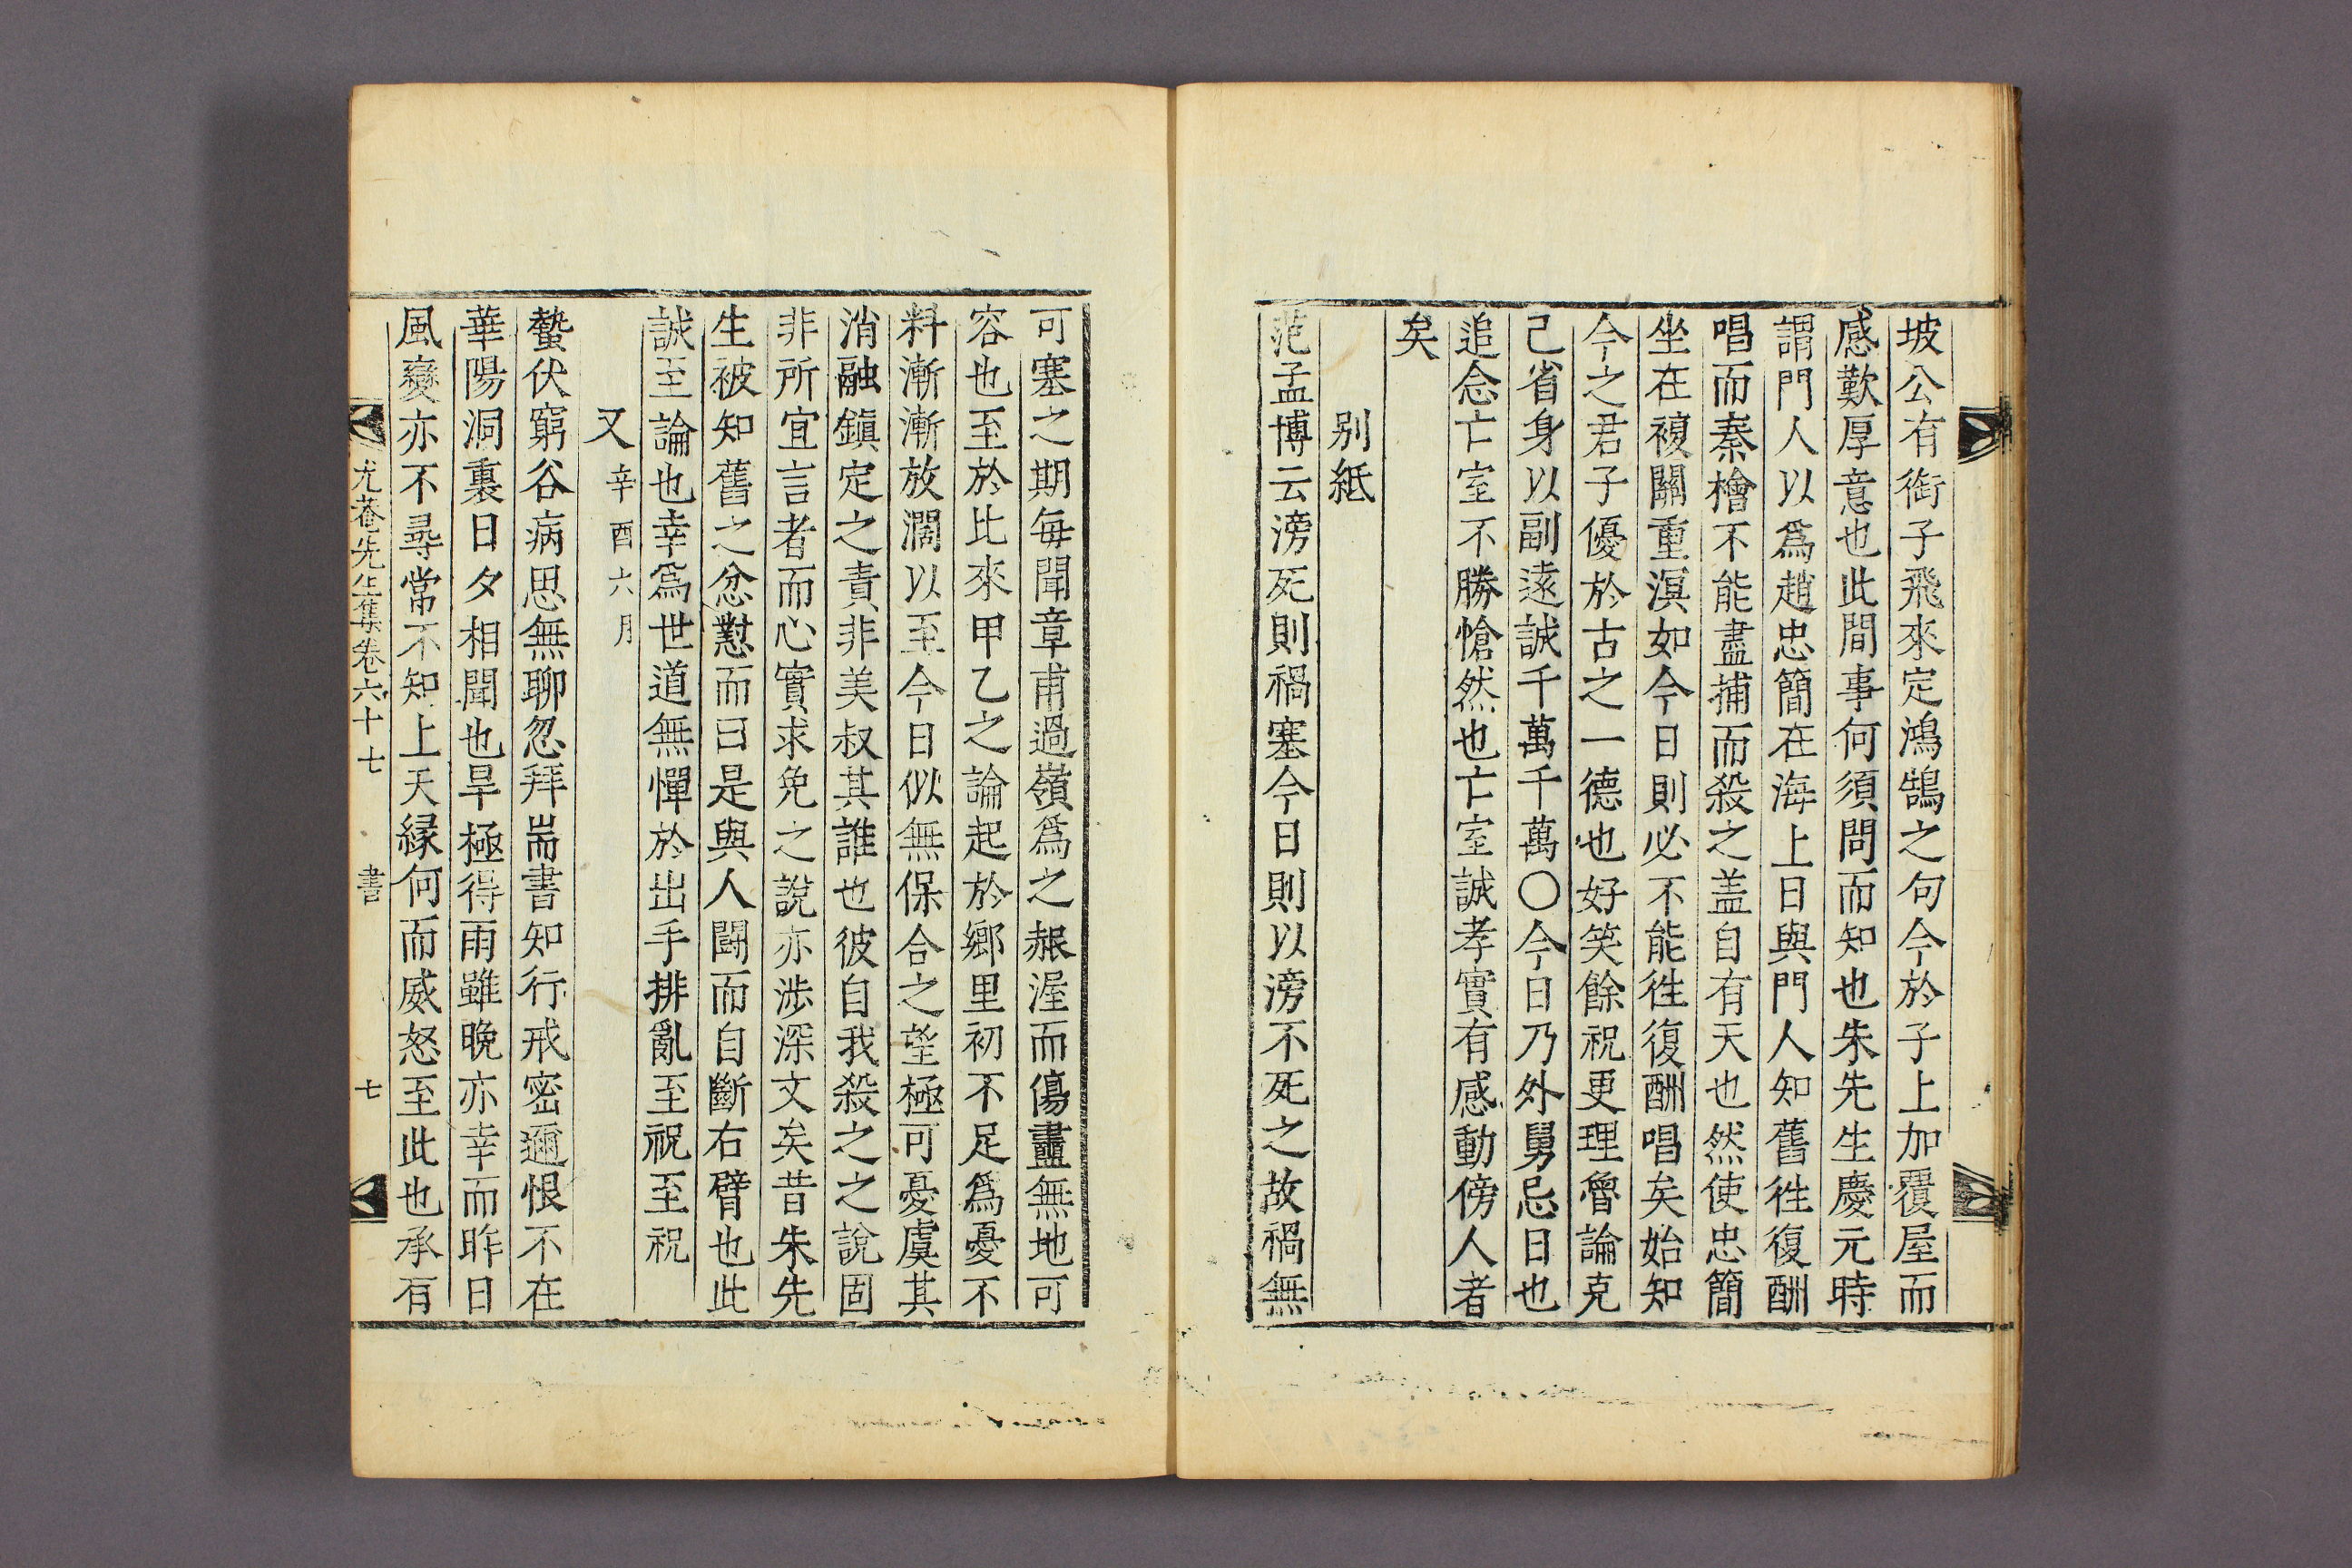 坡公有衒子飛來定鴻鵠之句今於子上加覆屋而
感歎厚意也此間事何須問而知也朱先生慶元時
謂門人以爲趙忠簡在海上日與門人知舊徃復酬
唱而秦檜不能盡捕而殺之盖自有天也然使忠簡
坐在複關重溟如今日則必不能徃復酬唱矣始知
今之君子優於古之一德也好笑餘祝更理魯論克
己省身以副遠誠千萬千萬○今日乃外舅忌日也
追念亡室不勝愴然也亡室誠孝實有感動傍人者
矣
別紙
范孟博云滂死則禍塞今日則以滂不死之故禍無
可塞之期每聞章甫過嶺爲之赧渥而傷盡無地可
容也至於比來甲乙之論起於鄉里初不足爲憂不
料漸漸放濶以至今日似無保合之望極可憂虞其
消融鎭定之責非美叔其誰也彼自我殺之之說固
非所宜言者而心實求免之說亦涉深文矣昔朱先
生被知舊之忿懟而曰是與人鬪而自斷右臂也此
誠至論也幸爲世道無憚於出手排亂至祝至祝
又 辛酉六月
蟄伏窮谷病思無聊忽拜耑書知行戒密邇恨不在
華陽洞裏日夕相聞也旱極得雨雖晩亦幸而昨日
風變亦不尋常不知上天緣何而威怒至此也承有
尤菴先生集卷六十七 書 七